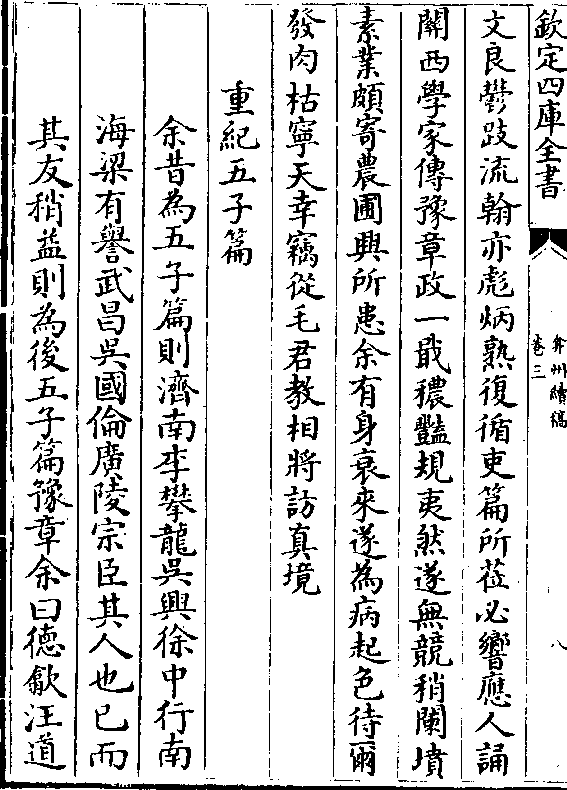 欽定四庫全書
弇州續稿
卷三
八
文良鬱跂流翰亦彪炳熟復循吏篇所蒞必響應人誦
關西學家傳豫章政一戢穠豔規夷然遂無競稍闌墳
素業頗寄農圃興所患余有身衰來遂為病起色待爾
發肉枯寧天幸竊從毛君教相將訪真境
重紀五子篇
余昔為五子篇則濟南李攀龍吳興徐中行南
海梁有譽武昌吳國倫廣陵宗臣其人也已而
其友稍益則為後五子篇豫章余曰德歙汪道